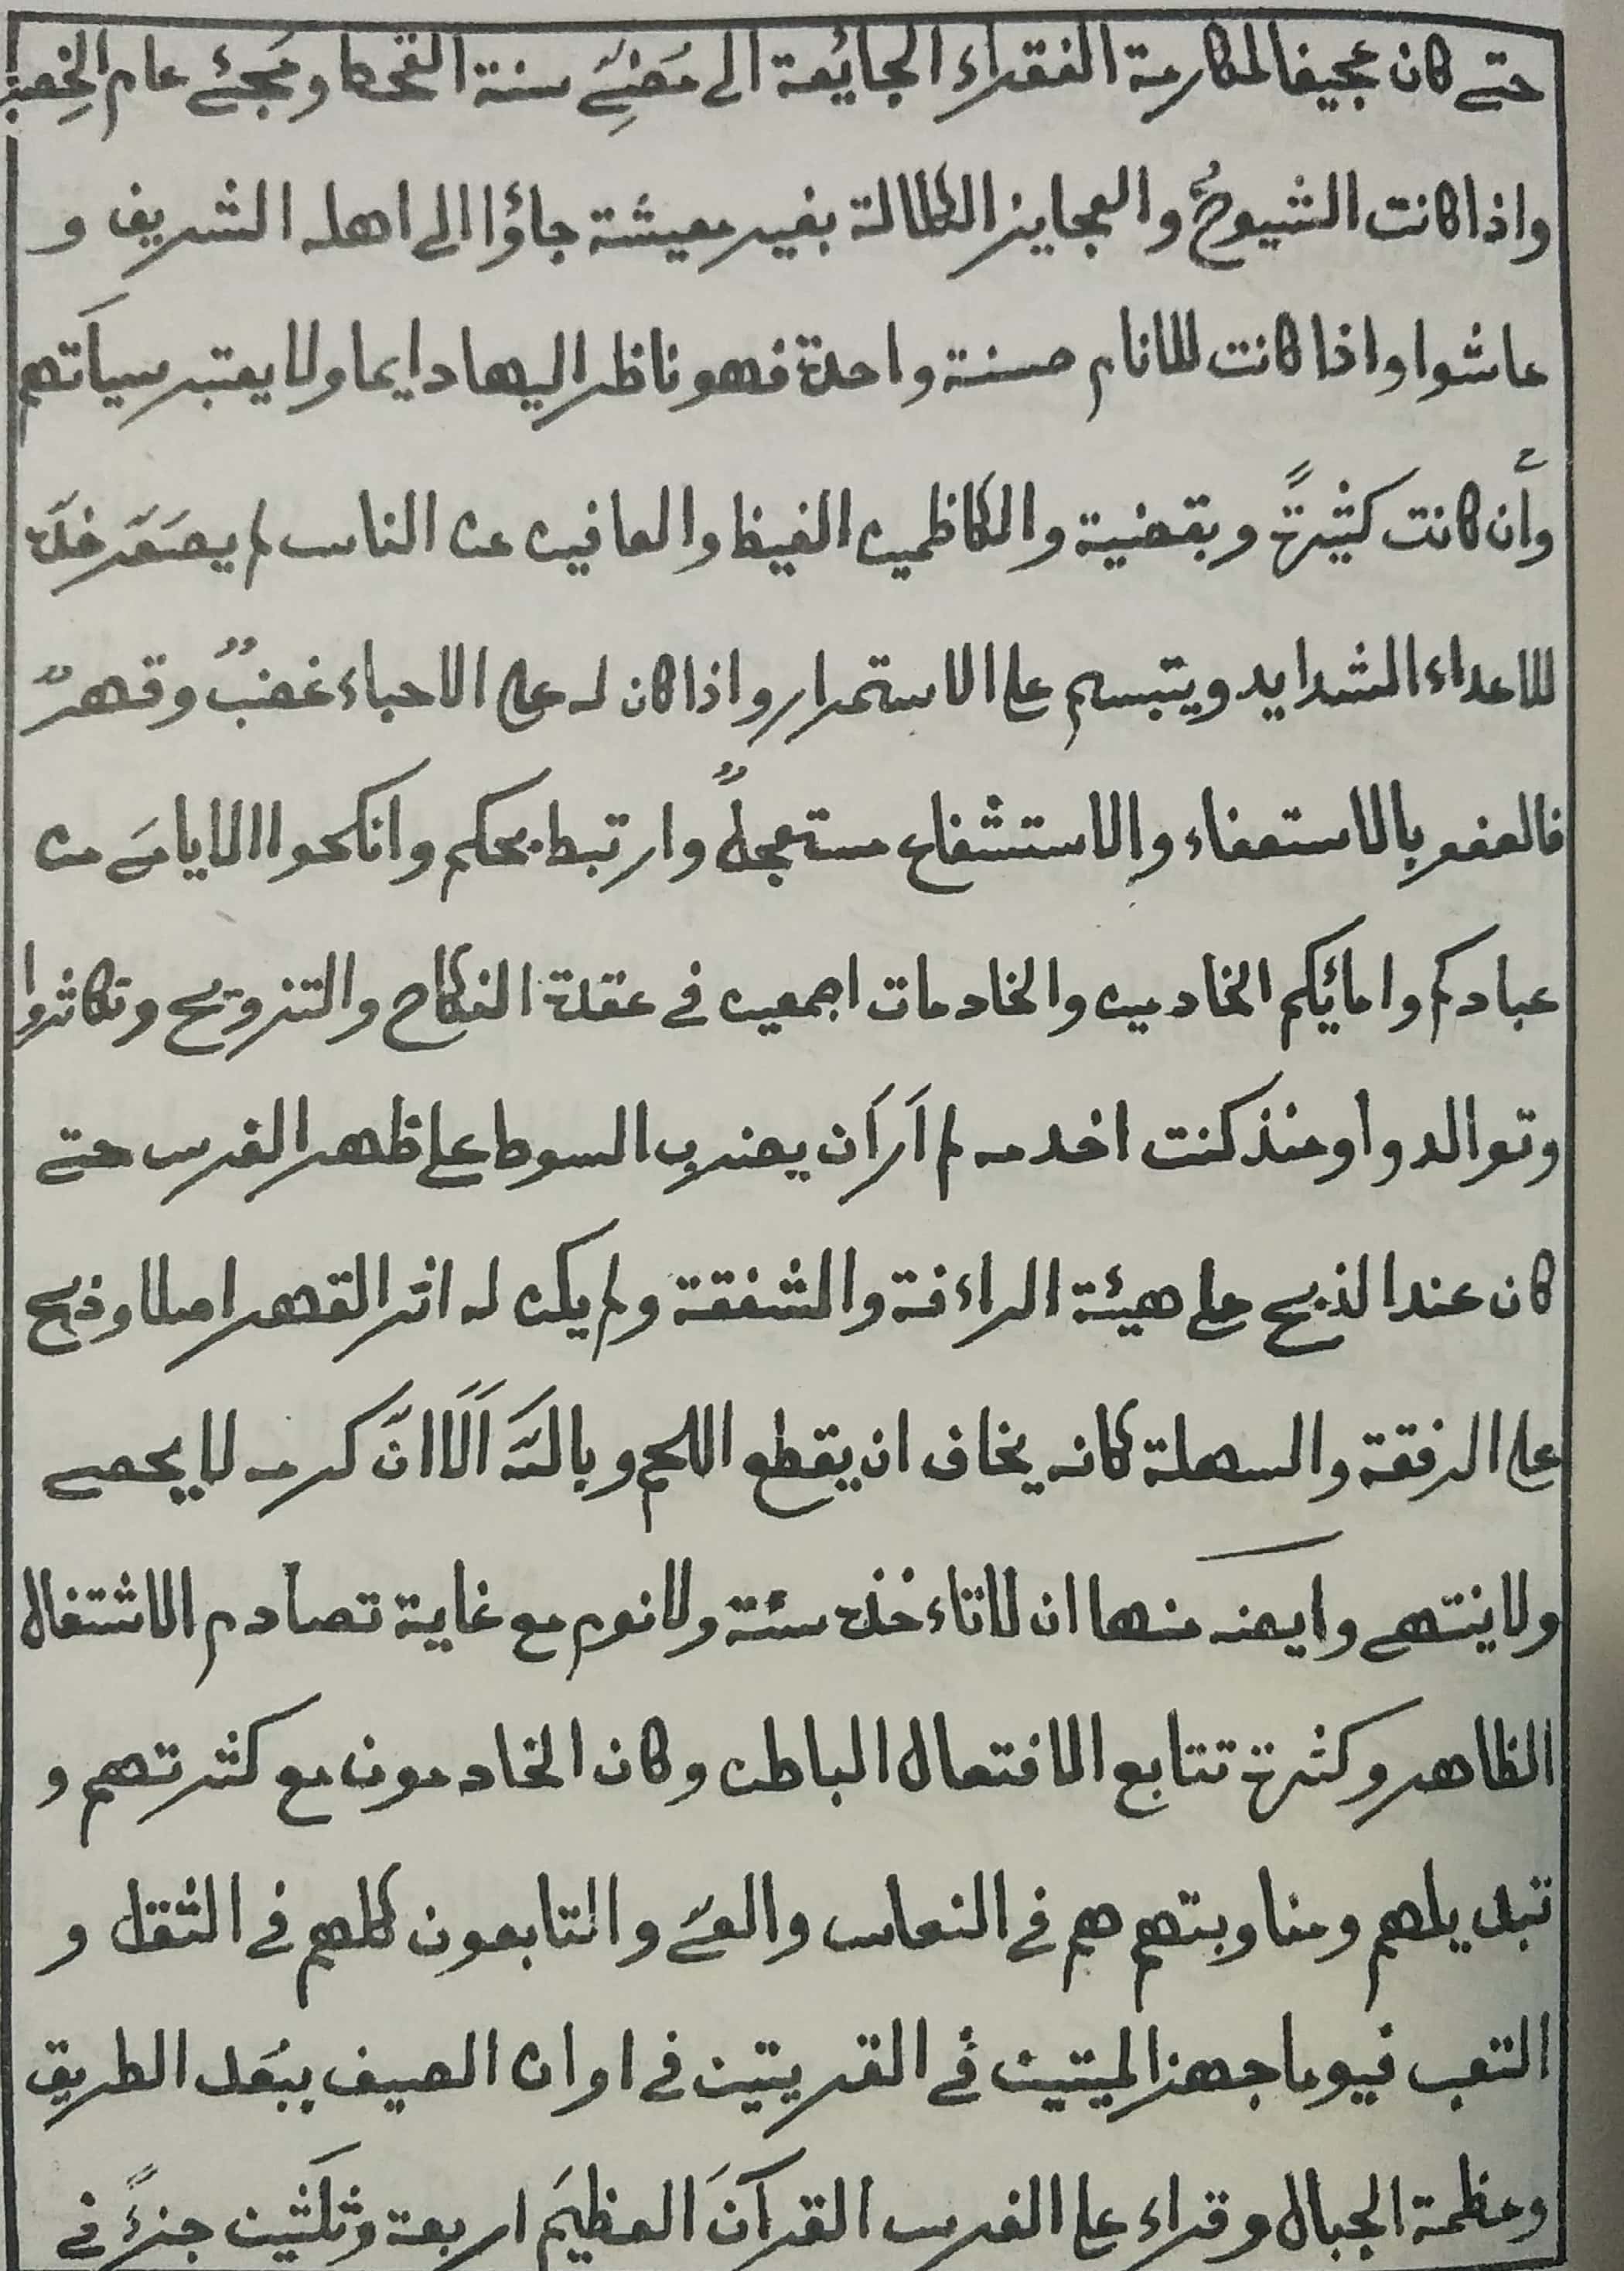 حتے كان عجيفا لمكارمة الفقراء الجائعة الى مَضِیِّ سنة القحط ومَجئے عام الخِصب
واذا كانت الشيوخُ والعجايز الكلالة بغير معيشة جاؤا الى اهله الشريف و
عاشوا واذا كانت للانام حسنة واحدة فهو ناظر اليها دايما ولا يعتبر سيآتهم
وأن كانت كثيرةً وبقضية والكاظمين الغيظ والعافين عن الناس لم يصَعّر خدّه
للاعداء الشدايد ويتبسم على الاستمرار واذا كان له على الاحباء غضبٌ وقهرٌ
فالعفو بالاستعفاء والاستشفاع مستعجلٌ وارتبط بحكم وانكحوا الايامَى من
عبادكم وامائكم الخادمين والخادمات اجمعين فے عقدة النكاح والتزويج وتكاثروا
وتوالدوا ومنذ كنت اخدمه لم اَرَ اَن يضرب السوط على ظهر الفرس حتے
كان عند الذبح على هيئة الراءفة والشفقة ولم يكن له اثر القهر اصلا وذبح
على الرفقة والسهلة كانه يخاف ان يقطع اللحم وبالله اَلَا انَّ كرمه لا يحصے
ولا ينتهے وايضه منها ان لا تاءخذه سنة ولا نوم مع غاية تصادم الاشتغال
الظاهر وكثرة تتابع الافتعال الباطن وكان الخادمون مع كثرتهم و
تبديلهم ومناوبتهم هم فے النعاس والعے والتابعون كلهم فے الثقل و
التعب فيوما جهز الميتين فے القريتين فے اوان الصيف ببُعد الطريق
وعظمة الجبال وقراء على الفرس القرآنَ العظيمَ اربعة وثلثين جزءً فے